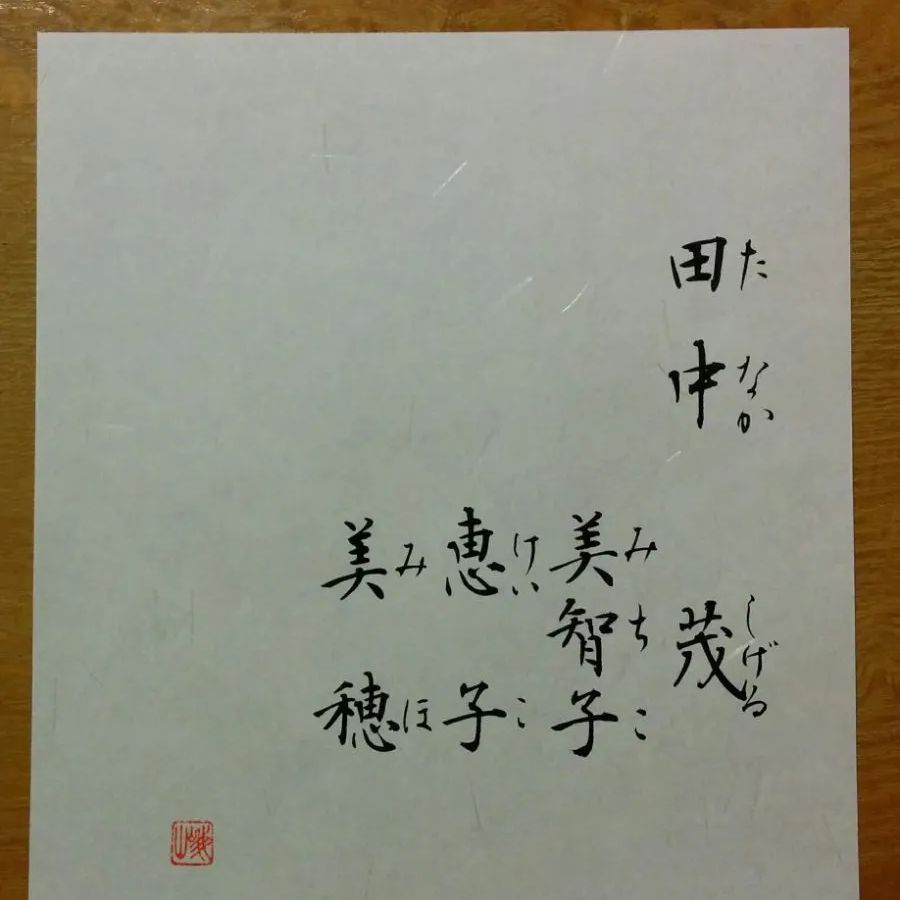 田中 茂
たなか しげる
美智子
みちこ
恵子
けいこ
美穂
みほ